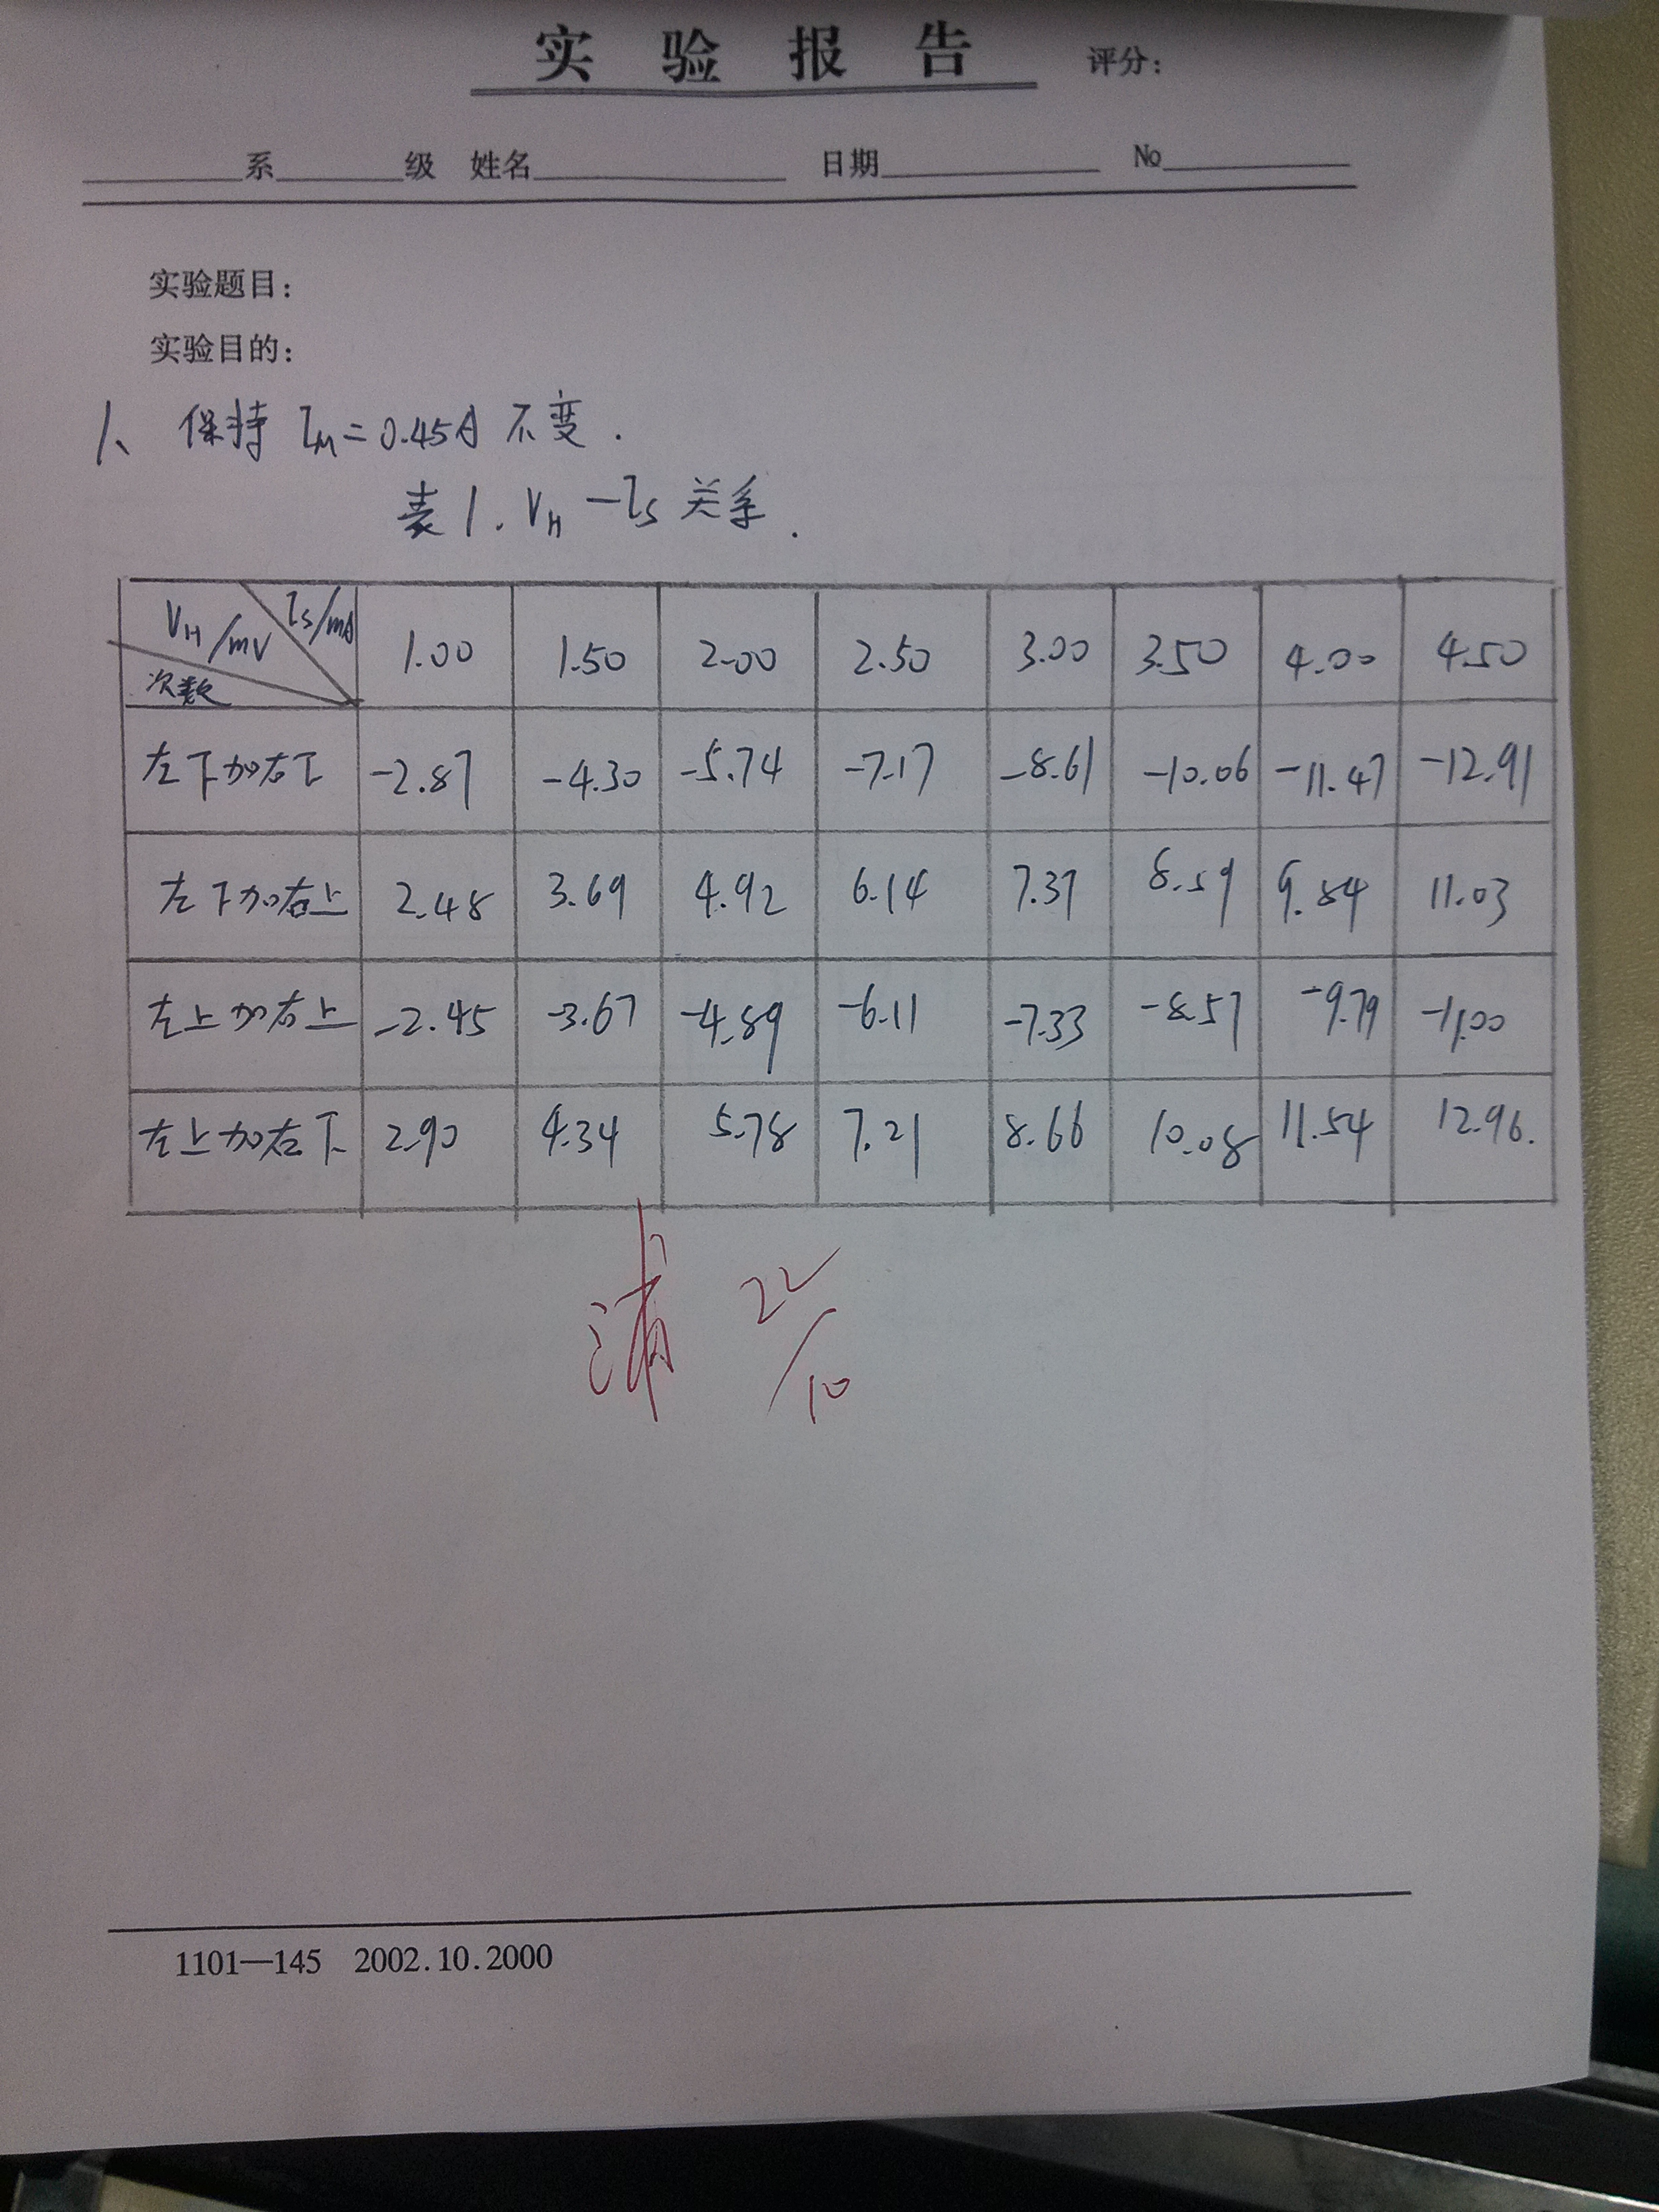 实验报告 评分:
系 级 姓名 日期 No
实验题目:
实验目的:
1、保持 IM=0.45A 不变.
表1. VH-IS 关系.
VH/mV IS/mA 次数 1.00 1.50 2.00 2.50 3.00 3.50 4.00 4.50
左下加右下 -2.87 -4.30 -5.74 -7.17 -8.61 -10.06 -11.47 -12.91
左下加右上 2.48 3.69 4.92 6.14 7.37 8.59 9.84 11.03
左上加右上 -2.45 -3.67 -4.89 -6.11 -7.33 -8.57 -9.79 -11.00
左上加右下 2.90 4.34 5.78 7.21 8.66 10.08 11.54 12.96.
浦 22/10
1101—145 2002.10.2000